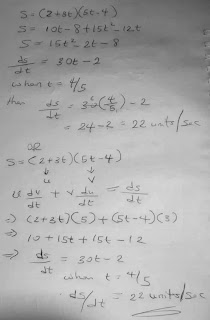 S = (2+3t)(5t-4)
S = 10t - 8 + 15t² - 12t
S = 15t² - 2t - 8
ds/dt = 30t - 2
when t = 4/5
then ds/dt = 30(4/5) - 2
= 24 - 2 = 22 units/sec
OR
S = (2+3t)(5t-4)
↓ ↓
u v
u dv/dt + v du/dt = ds/dt
⇒ (2+3t)(5) + (5t-4)(3)
⇒ 10 + 15t + 15t - 12
⇒ ds/dt = 30t - 2
when t = 4/5
∴ ds/dt = 22 units/sec